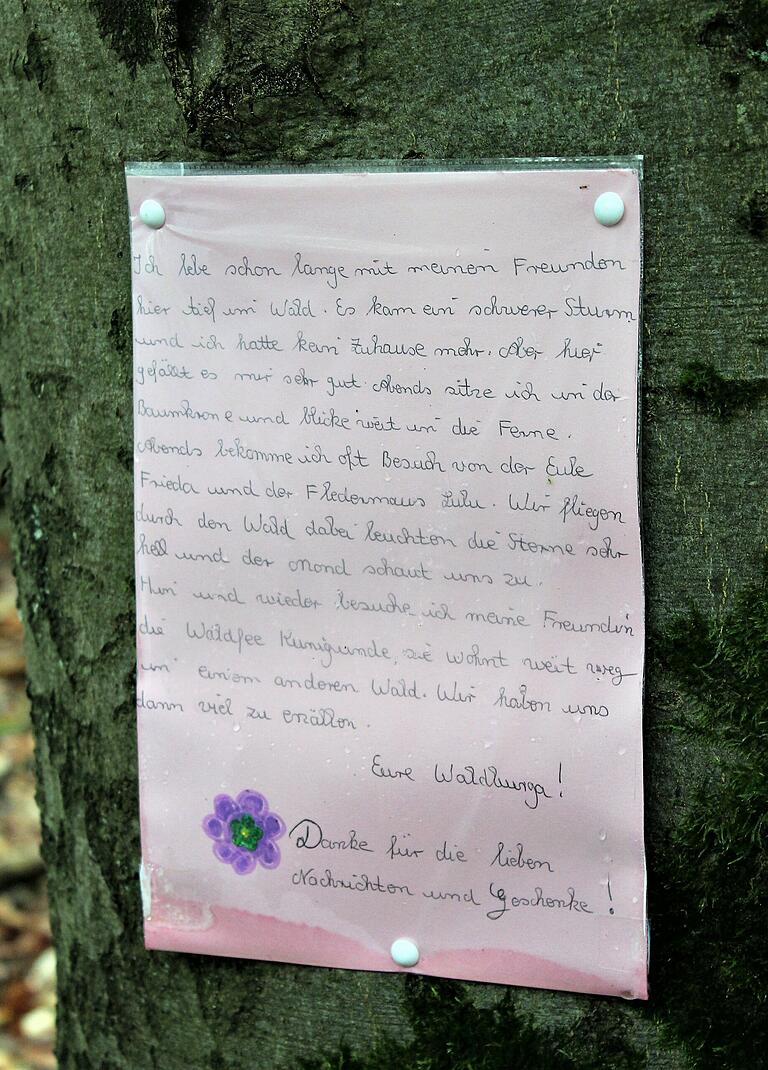 Ich lebe schon lange mit meinen Freunden
hier tief im Wald. Es kam ein schwerer Sturm
und ich hatte kein Zuhause mehr. Aber hier
gefällt es mir sehr gut. Abends sitze ich in der
Baumkrone und blicke weit in die Ferne.
Abends bekomme ich oft Besuch von der Eule
Frieda und der Fledermaus Lulu. Wir fliegen
durch den Wald dabei leuchten die Sterne sehr
hell und der Mond schaut uns zu.
Hin und wieder besuche ich meine Freundin
die Waldfee Kunigunde, sie wohnt weit weg
in einem anderen Wald. Wir haben uns
dann viel zu erzällen.
Eure Waldburga!
Danke für die lieben
Nachrichten und Geschenke!